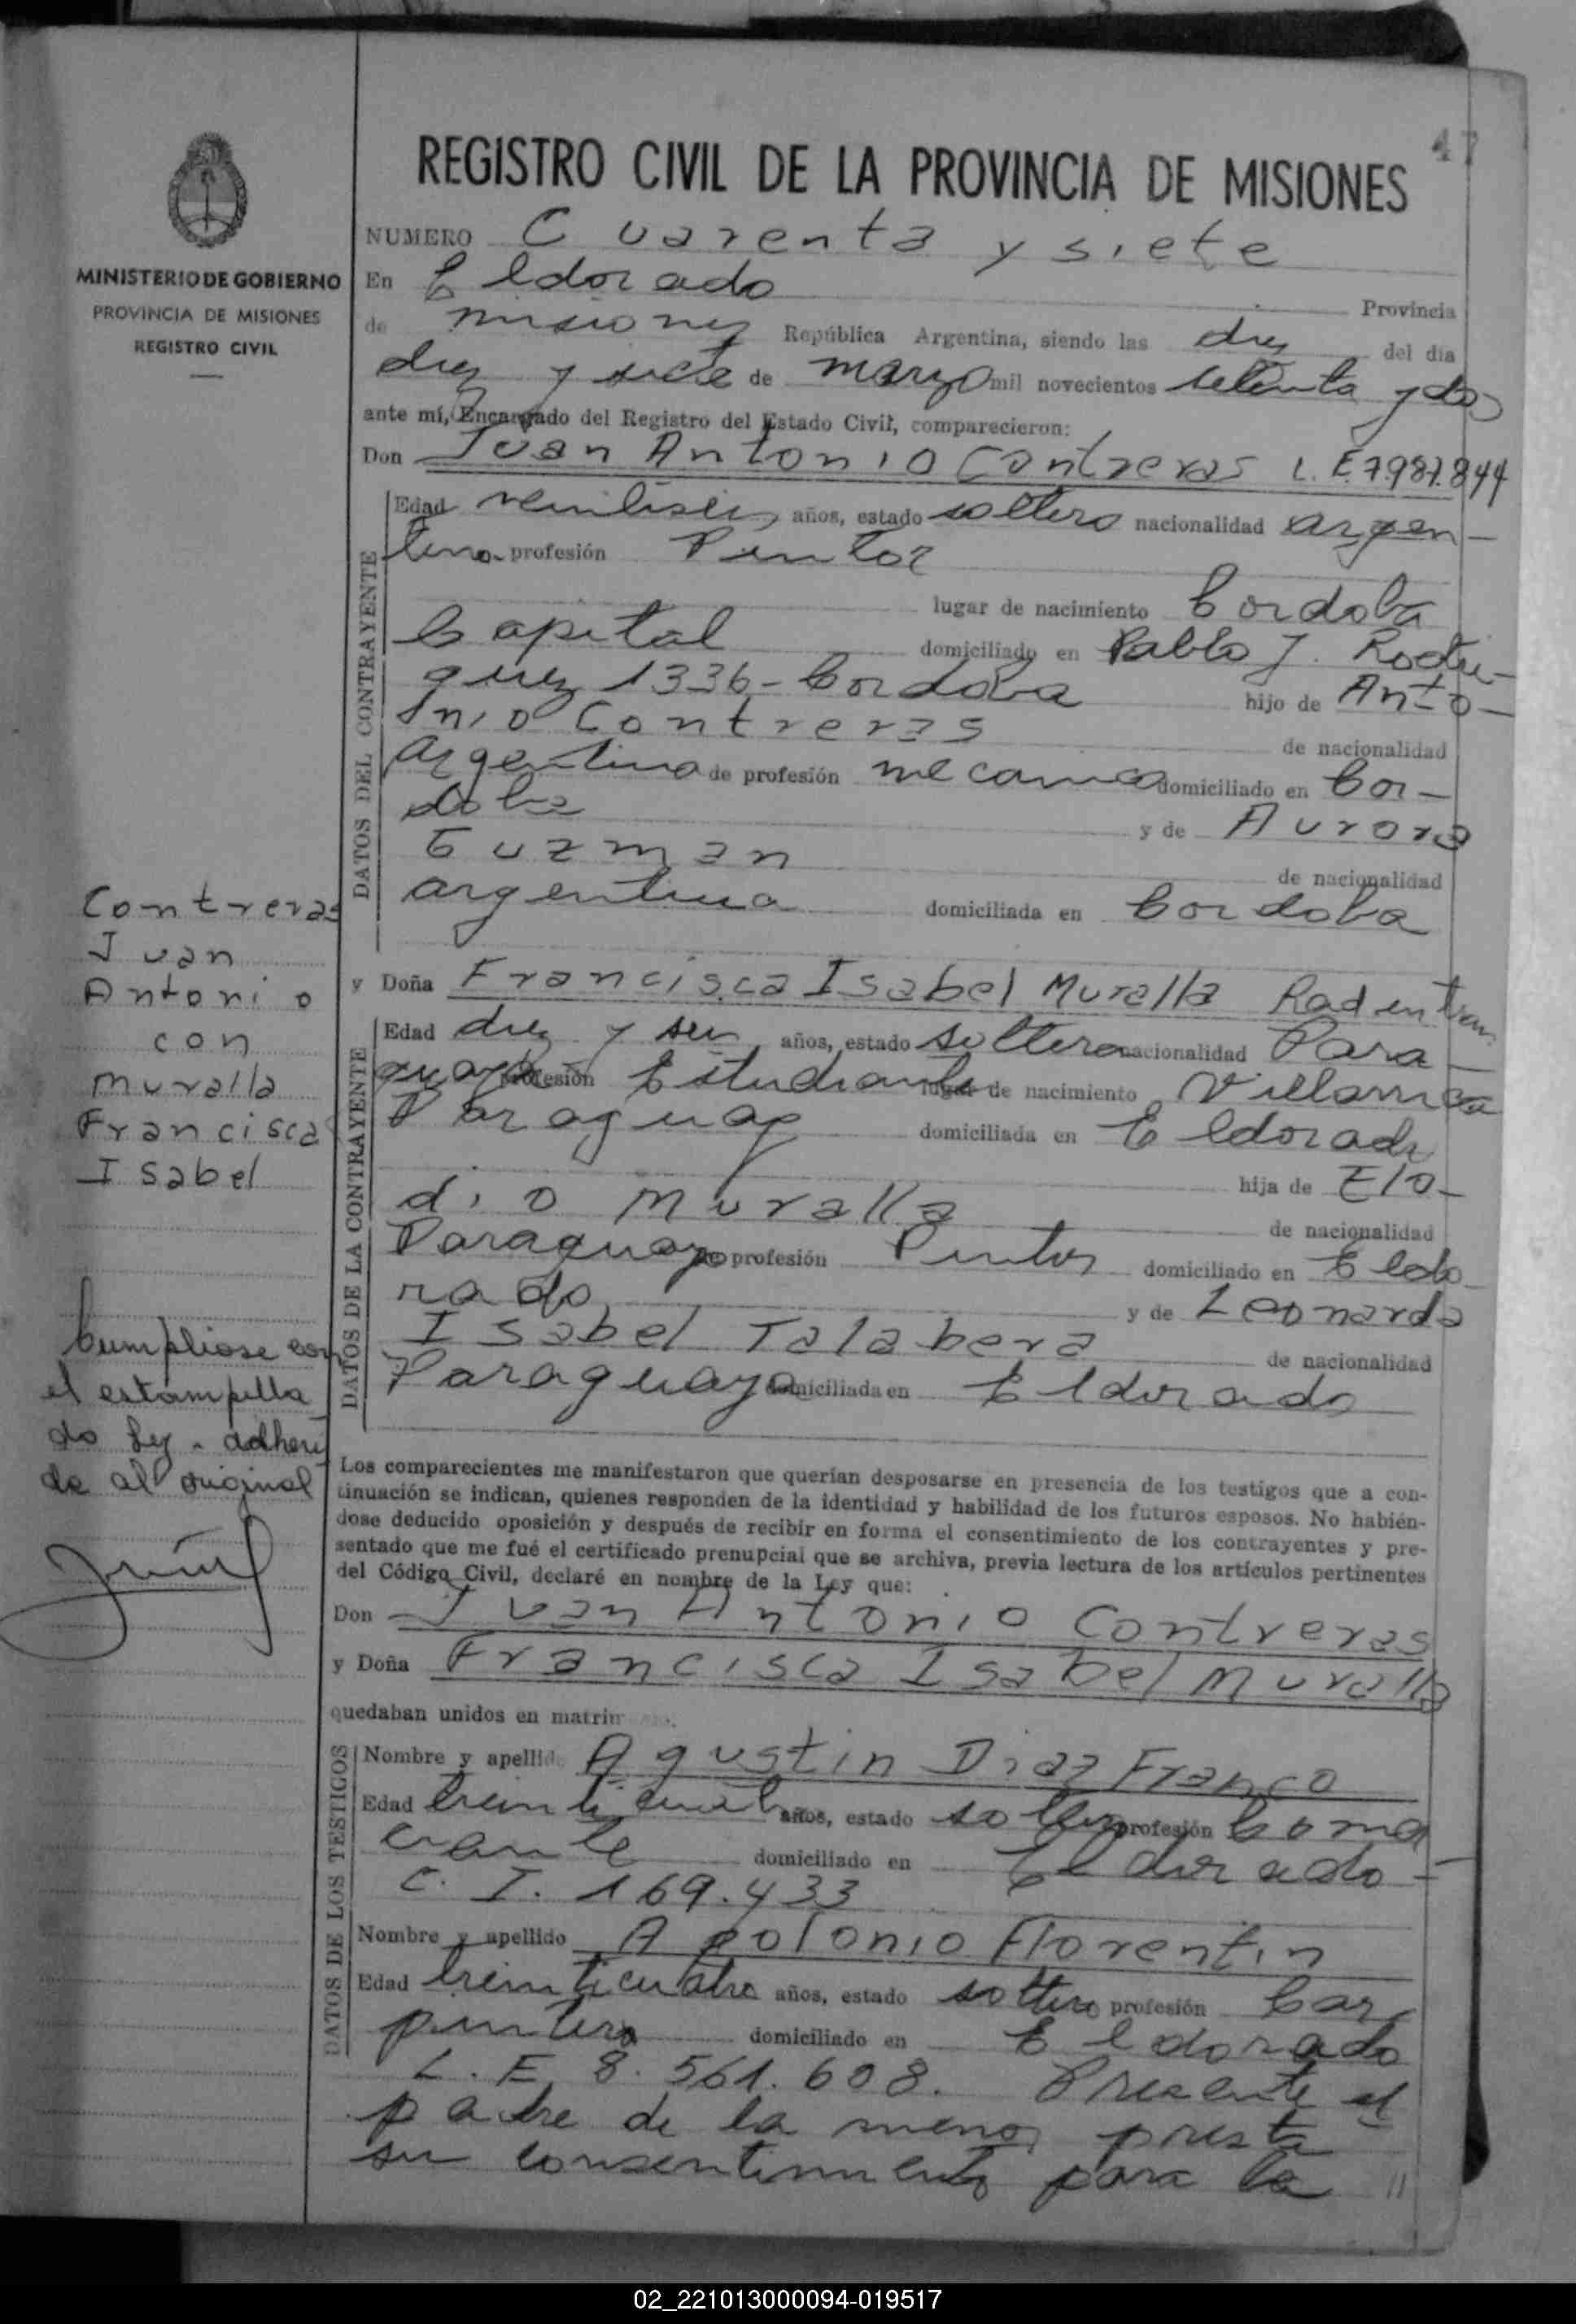 47
REGISTRO CIVIL DE LA PROVINCIA DE MISIONES
MINISTERIO DE GOBIERNO
PROVINCIA DE MISIONES
REGISTRO CIVIL
NUMERO Cuarenta y siete
En Eldorado Provincia
de misiones República Argentina, siendo las diez del día
diez y siete de marzo mil novecientos setenta y dos
ante mí, Encargado del Registro del Estado Civil, comparecieron:
Don Juan Antonio Contreras L.E. 7.987.844
DATOS DEL CONTRAYENTE
Edad veintiseis años, estado soltero nacionalidad argen-
tina profesión Pintor
lugar de nacimiento Cordoba
Capital domiciliado en Pablo J. Rodri-
guez 1336 - Cordoba hijo de Anto-
nio Contreras de nacionalidad
argentina de profesión mecanico domiciliado en Cor-
doba y de Aurora
Guzman de nacionalidad
argentina domiciliada en Cordoba
Contreras
Juan
Antonio
con
Muralla
Francisca
Isabel
y Doña Francisca Isabel Muralla Rad en tran
DATOS DE LA CONTRAYENTE
Edad diez y seis años, estado soltera nacionalidad Para-
guaya profesión Estudiante lugar de nacimiento Villarrica
Paraguay domiciliada en Eldorado
hija de Elo-
dio Muralla de nacionalidad
Paraguayo de profesión Pintor domiciliado en Eldo-
rado y de Leonarda
Isabel Talabera de nacionalidad
Paraguaya domiciliada en Eldorado
Cumpliose con
el estampilla
do Ley - adheri
da al original
Los comparecientes me manifestaron que querían desposarse en presencia de los testigos que a con-
tinuación se indican, quienes responden de la identidad y habilidad de los futuros esposos. No habién-
dose deducido oposición y después de recibir en forma el consentimiento de los contrayentes y pre-
sentado que me fué el certificado prenupcial que se archiva, previa lectura de los artículos pertinentes
del Código Civil, declaré en nombre de la Ley que:
Don Juan Antonio Contreras
y Doña Francisca Isabel Muralla
quedaban unidos en matrim
DATOS DE LOS TESTIGOS
Nombre y apellido Agustin Diaz Franco
Edad treinticuatro años, estado soltero profesión Comer
ciante domiciliado en Eldorado -
C. I. 169.433
Nombre y apellido Apolonio Florentin
Edad treinticuatro años, estado soltero profesión Car
pintero domiciliado en Eldorado
L. E. 8.561.608. Presente el
padre de la menor presta
su consentimiento para la //
02_221013000094-019517